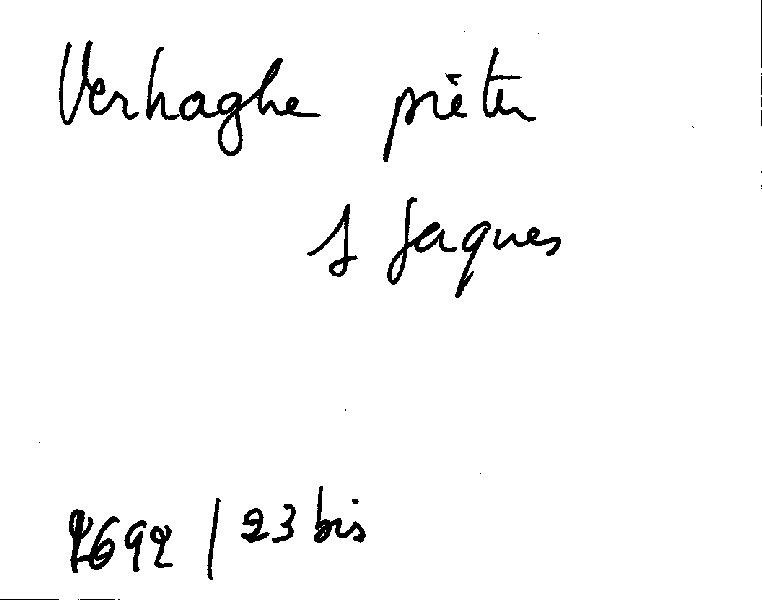 Verhaghe piēter
s Jaques
2692 / 23 bis